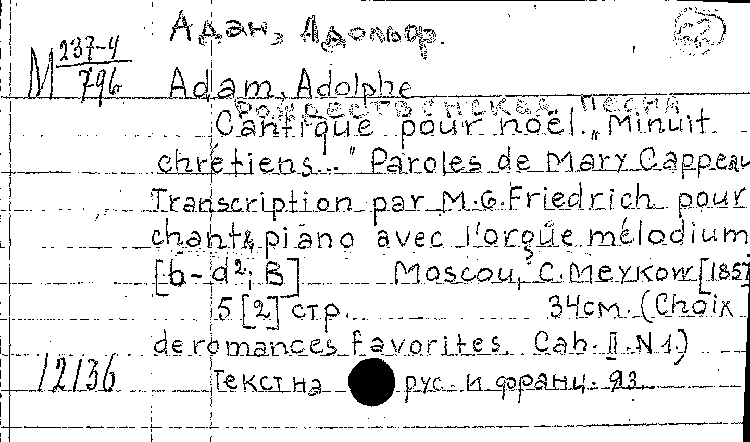 Адан, Адольф.
М 237-4
796
Adam, Adolphe
Рождественская песня
Cantique pour noël. „Minuit
chrétiens..." Paroles de Mary Cappeau
Transcription par M.G.Friedrich pour
chant & piano avec l'orgue mélodium
[b-d²; B] Moscou, C. Meykow [1857]
5 [2] стр. 34см. (Choix
de romances favorites. Cah. II. N 1.)
12136
Текст на рус. и франц. яз.